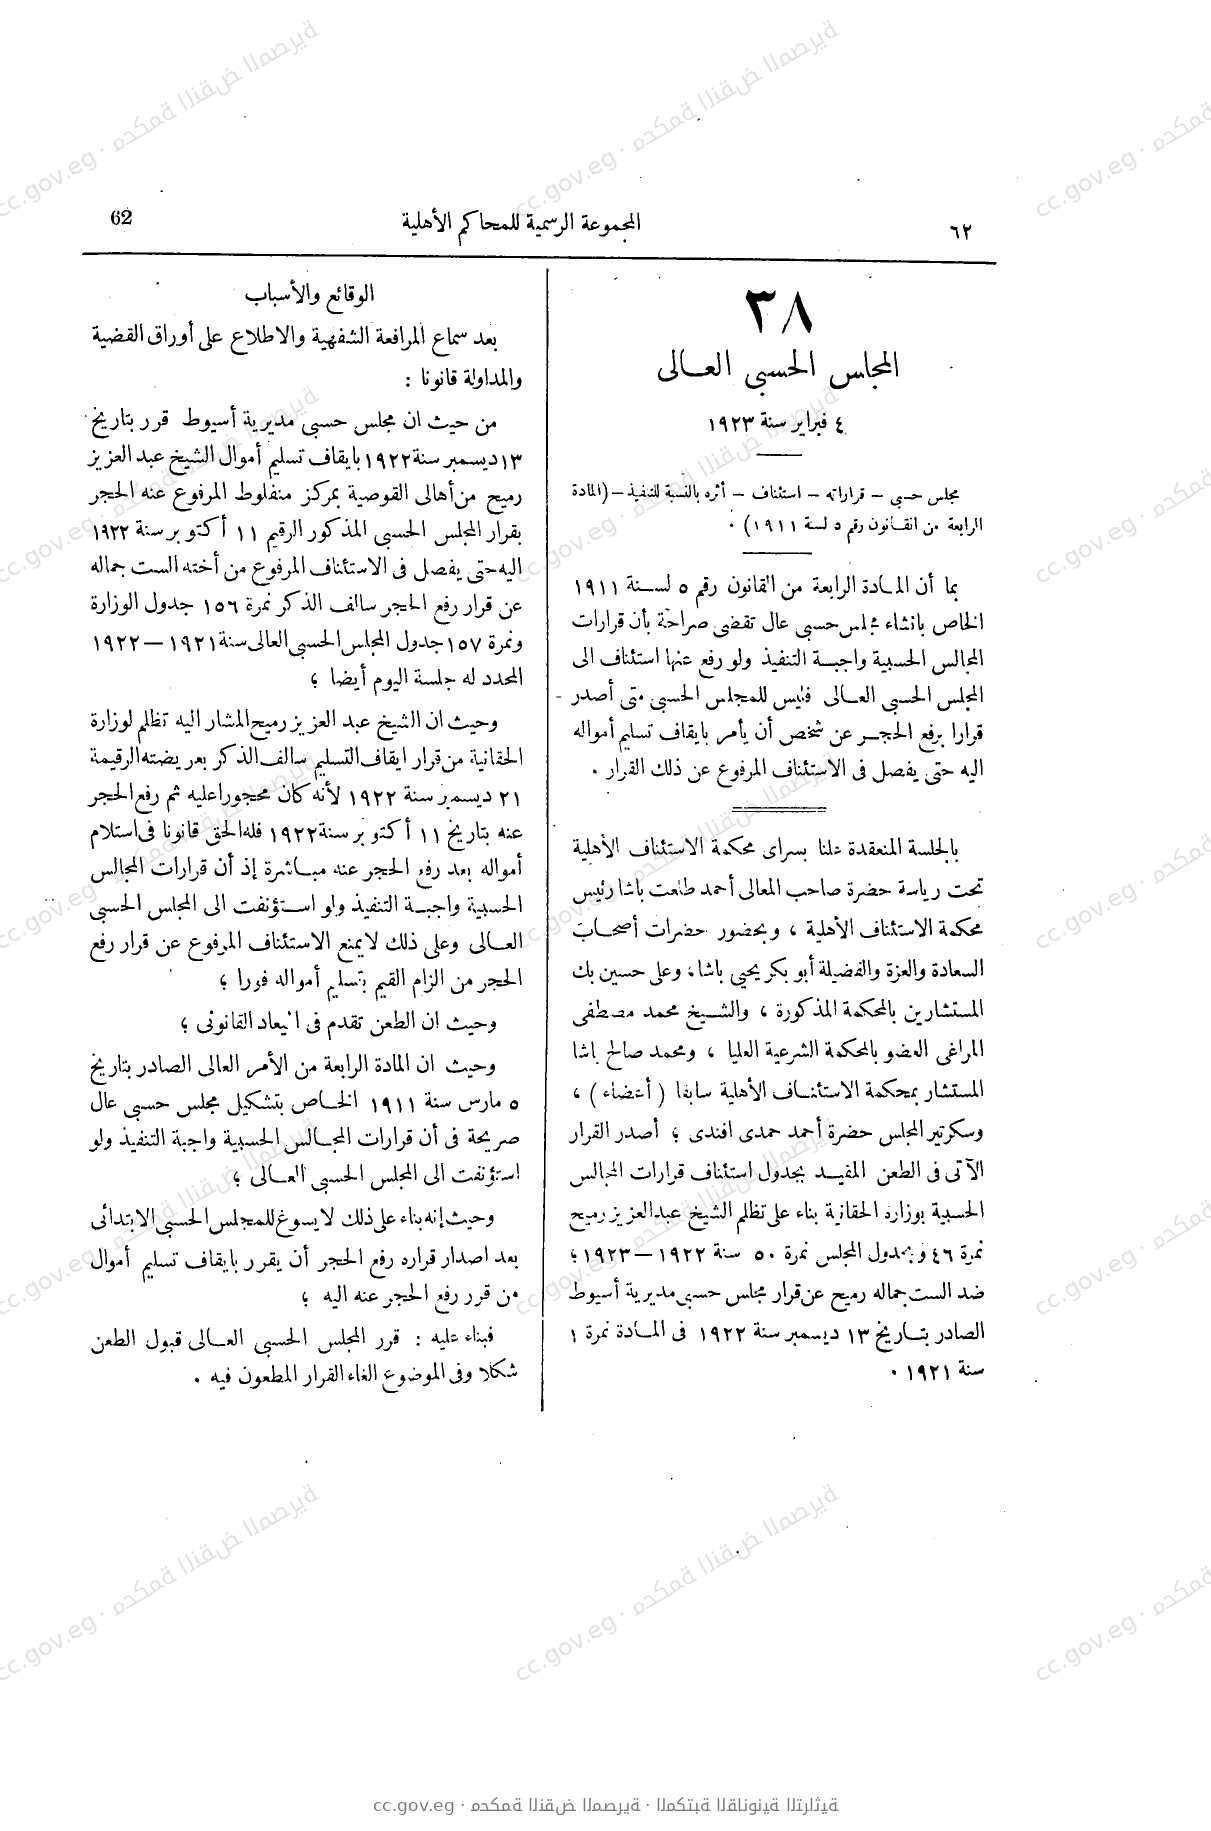 ٦٢
المجموعة الرسمية للمحاكم الأهلية
62
٣٨
المجلس الحسبى العالى
٤ فبراير سنة ١٩٢٣
مجلس حسبى – قراراته – استئناف – أثره بالنسبة للتنفيذ – (المادة
الرابعة من القانون رقم ٥ لسنة ١٩١١) .
بما أن المادة الرابعة من القانون رقم ٥ لسنة ١٩١١
الخاص بانشاء مجلس حسبى عال تقضى صراحة بأن قرارات
المجالس الحسبية واجبة التنفيذ ولو رفع عنها استئناف الى
المجلس الحسبى العالى فليس للمجلس الحسبى متى أصدر
قرارا برفع الحجر عن شخص أن يأمر بايقاف تسليم أمواله
اليه حتى يفصل فى الاستئناف المرفوع عن ذلك القرار .
بالجلسة المنعقدة علنا بسراى محكمة الاستئناف الأهلية
تحت رياسة حضرة صاحب المعالى أحمد طلعت باشا رئيس
محكمة الاستئناف الأهلية ، وبحضور حضرات أصحاب
السعادة والعزة والفضيلة أبو بكر يحيى باشا، وعلى حسين بك
المستشارين بالمحكمة المذكورة ، والشيخ محمد مصطفى
المراغى العضو بالمحكمة الشرعية العليا ، ومحمد صالح باشا
المستشار بمحكمة الاستئناف الأهلية سابقا ( أعضاء ) ،
وسكرتير المجلس حضرة أحمد حمدى افندى ؛ أصدر القرار
الآتى فى الطعن المقيد بجدول استئناف قرارات المجالس
الحسبية بوزارة الحقانية بناء على تظلم الشيخ عبد العزيز رميح
نمرة ٤٦ و بجدول المجلس نمرة ٥٠ سنة ١٩٢٢ – ١٩٢٣ ؛
ضد الست جماله رميح عن قرار مجلس حسبى مديرية أسيوط
الصادر بتاريخ ١٣ ديسمبر سنة ١٩٢٢ فى المادة نمرة ١
سنة ١٩٢١ .
الوقائع والأسباب
بعد سماع المرافعة الشفهية والاطلاع على أوراق القضية
والمداولة قانونا :
من حيث ان مجلس حسبى مديرية أسيوط قرر بتاريخ
١٣ ديسمبر سنة ١٩٢٢ بايقاف تسليم أموال الشيخ عبد العزيز
رميح من أهالى القوصية بمركز منفلوط المرفوع عنه الحجر
بقرار المجلس الحسبى المذكور الرقيم ١١ أكتوبر سنة ١٩٢٢
اليه حتى يفصل فى الاستئناف المرفوع من أخته الست جماله
عن قرار رفع الحجر سالف الذكر نمرة ١٥٦ جدول الوزارة
ونمرة ١٥٧ جدول المجلس الحسبى العالى سنة ١٩٢١ – ١٩٢٢
المحدد له جلسة اليوم أيضا ؛
وحيث ان الشيخ عبد العزيز رميح المشار اليه تظلم لوزارة
الحقانية من قرار ايقاف التسليم سالف الذكر بعريضته الرقيمة
٢١ ديسمبر سنة ١٩٢٢ لأنه كان محجورا عليه ثم رفع الحجر
عنه بتاريخ ١١ أكتوبر سنة ١٩٢٢ فله الحق قانونا فى استلام
أمواله بعد رفع الحجر عنه مباشرة إذ أن قرارات المجالس
الحسبية واجبة التنفيذ ولو استؤنفت الى المجلس الحسبى
العالى وعلى ذلك لا يمنع الاستئناف المرفوع عن قرار رفع
الحجر من الزام القيم بتسليم أمواله فورا ؛
وحيث ان الطعن تقدم فى الميعاد القانونى ؛
وحيث ان المادة الرابعة من الأمر العالى الصادر بتاريخ
٥ مارس سنة ١٩١١ الخاص بتشكيل مجلس حسبى عال
صريحة فى أن قرارات المجالس الحسبية واجبة التنفيذ ولو
استؤنفت الى المجلس الحسبى العالى ؛
وحيث إنه بناء على ذلك لا يسوغ للمجلس الحسبى الابتدائى
بعد اصدار قراره رفع الحجر أن يقرر بايقاف تسليم أموال
من قرر رفع الحجر عنه اليه ؛
فبناء عليه : قرر المجلس الحسبى العالى قبول الطعن
شكلا وفى الموضوع الغاء القرار المطعون فيه .
cc.gov.eg · محكمة النقض المصرية · المكتبة القانونية التراثية